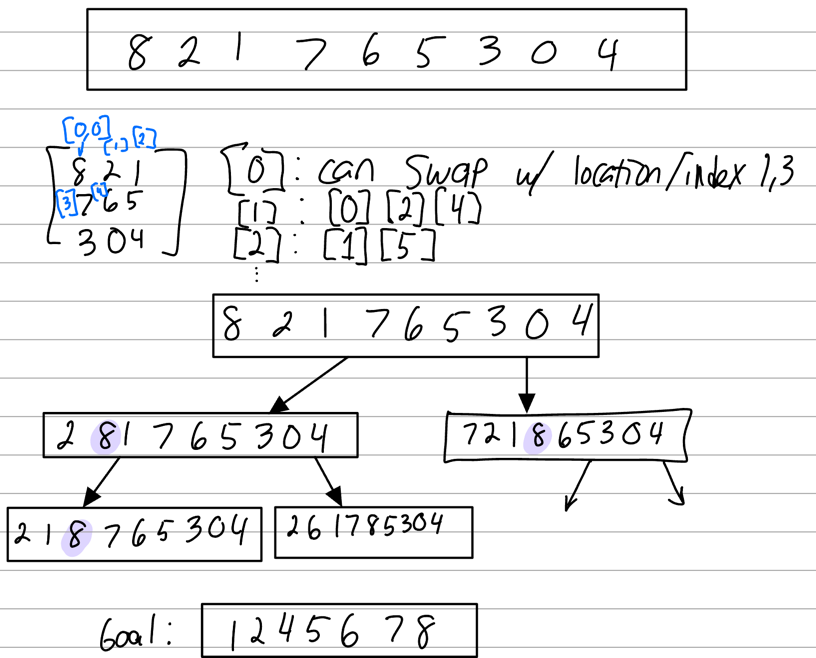 8 2 1 7 6 5 3 0 4
[0,0] [1] [2]
8 2 1
[3] 7 [4] 6 5
3 0 4
[0] : can swap w/ location/index 1,3
[1] : [0] [2] [4]
[2] : [1] [5]
⋮
8 2 1 7 6 5 3 0 4
2 8 1 7 6 5 3 0 4
7 2 1 8 6 5 3 0 4
2 1 8 7 6 5 3 0 4
2 6 1 7 8 5 3 0 4
Goal: 1 2 4 5 6 7 8